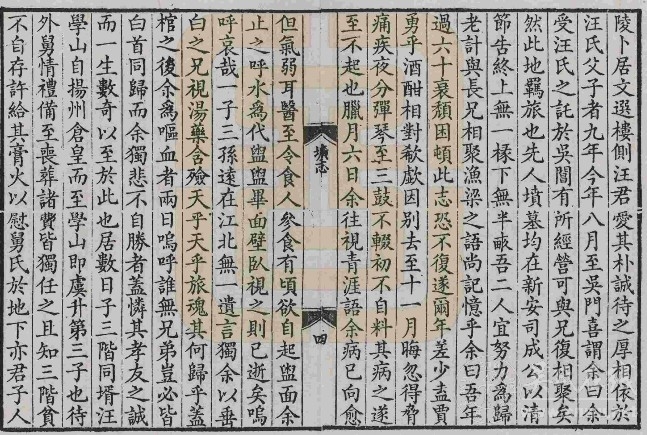 陵卜居文選樓側汪君愛其朴誠待之厚相依於
汪氏父子者九年今年八月至吳門喜謂余曰余
受汪氏之託於吳閶有所經營可與兄復相聚矣
然此地羈旅也先人墳墓均在新安司成公以清
節告終上無一椽下無半畝吾二人宜努力爲歸
老計與長兄相聚漁梁之語尚記憶乎余曰吾年
過六十衰頹困頓此志恐不復遂爾年差少盍賈
勇乎酒酣相對欷歔因別去至十一月晦忽得脅
痛疾夜分彈琴至三鼓不輟初不自料其病之遂
至不起也臘月六日余往視青涯語余病已向愈
壙志
四
但氣弱耳醫至令食人參食有頃欲自起盥面余
止之呼水爲代盥盥畢面壁臥視之則已逝矣嗚
呼哀哉一子三孫遠在江北無一遺言獨余以垂
白之兄視湯藥含殮天乎天乎旅魂其何歸乎蓋
棺之後余爲嘔血者兩日嗚呼誰無兄弟豈必皆
白首同歸而余獨悲不自勝者蓋憐其孝友之誠
而一生數奇以至於此也居數日子三階同壻汪
學山自揚州倉皇而至學山卽虞升第三子也待
外舅情禮備至喪葬諸費皆獨任之且知三階貧
不自存許給其膏火以慰舅氏於地下亦君子人